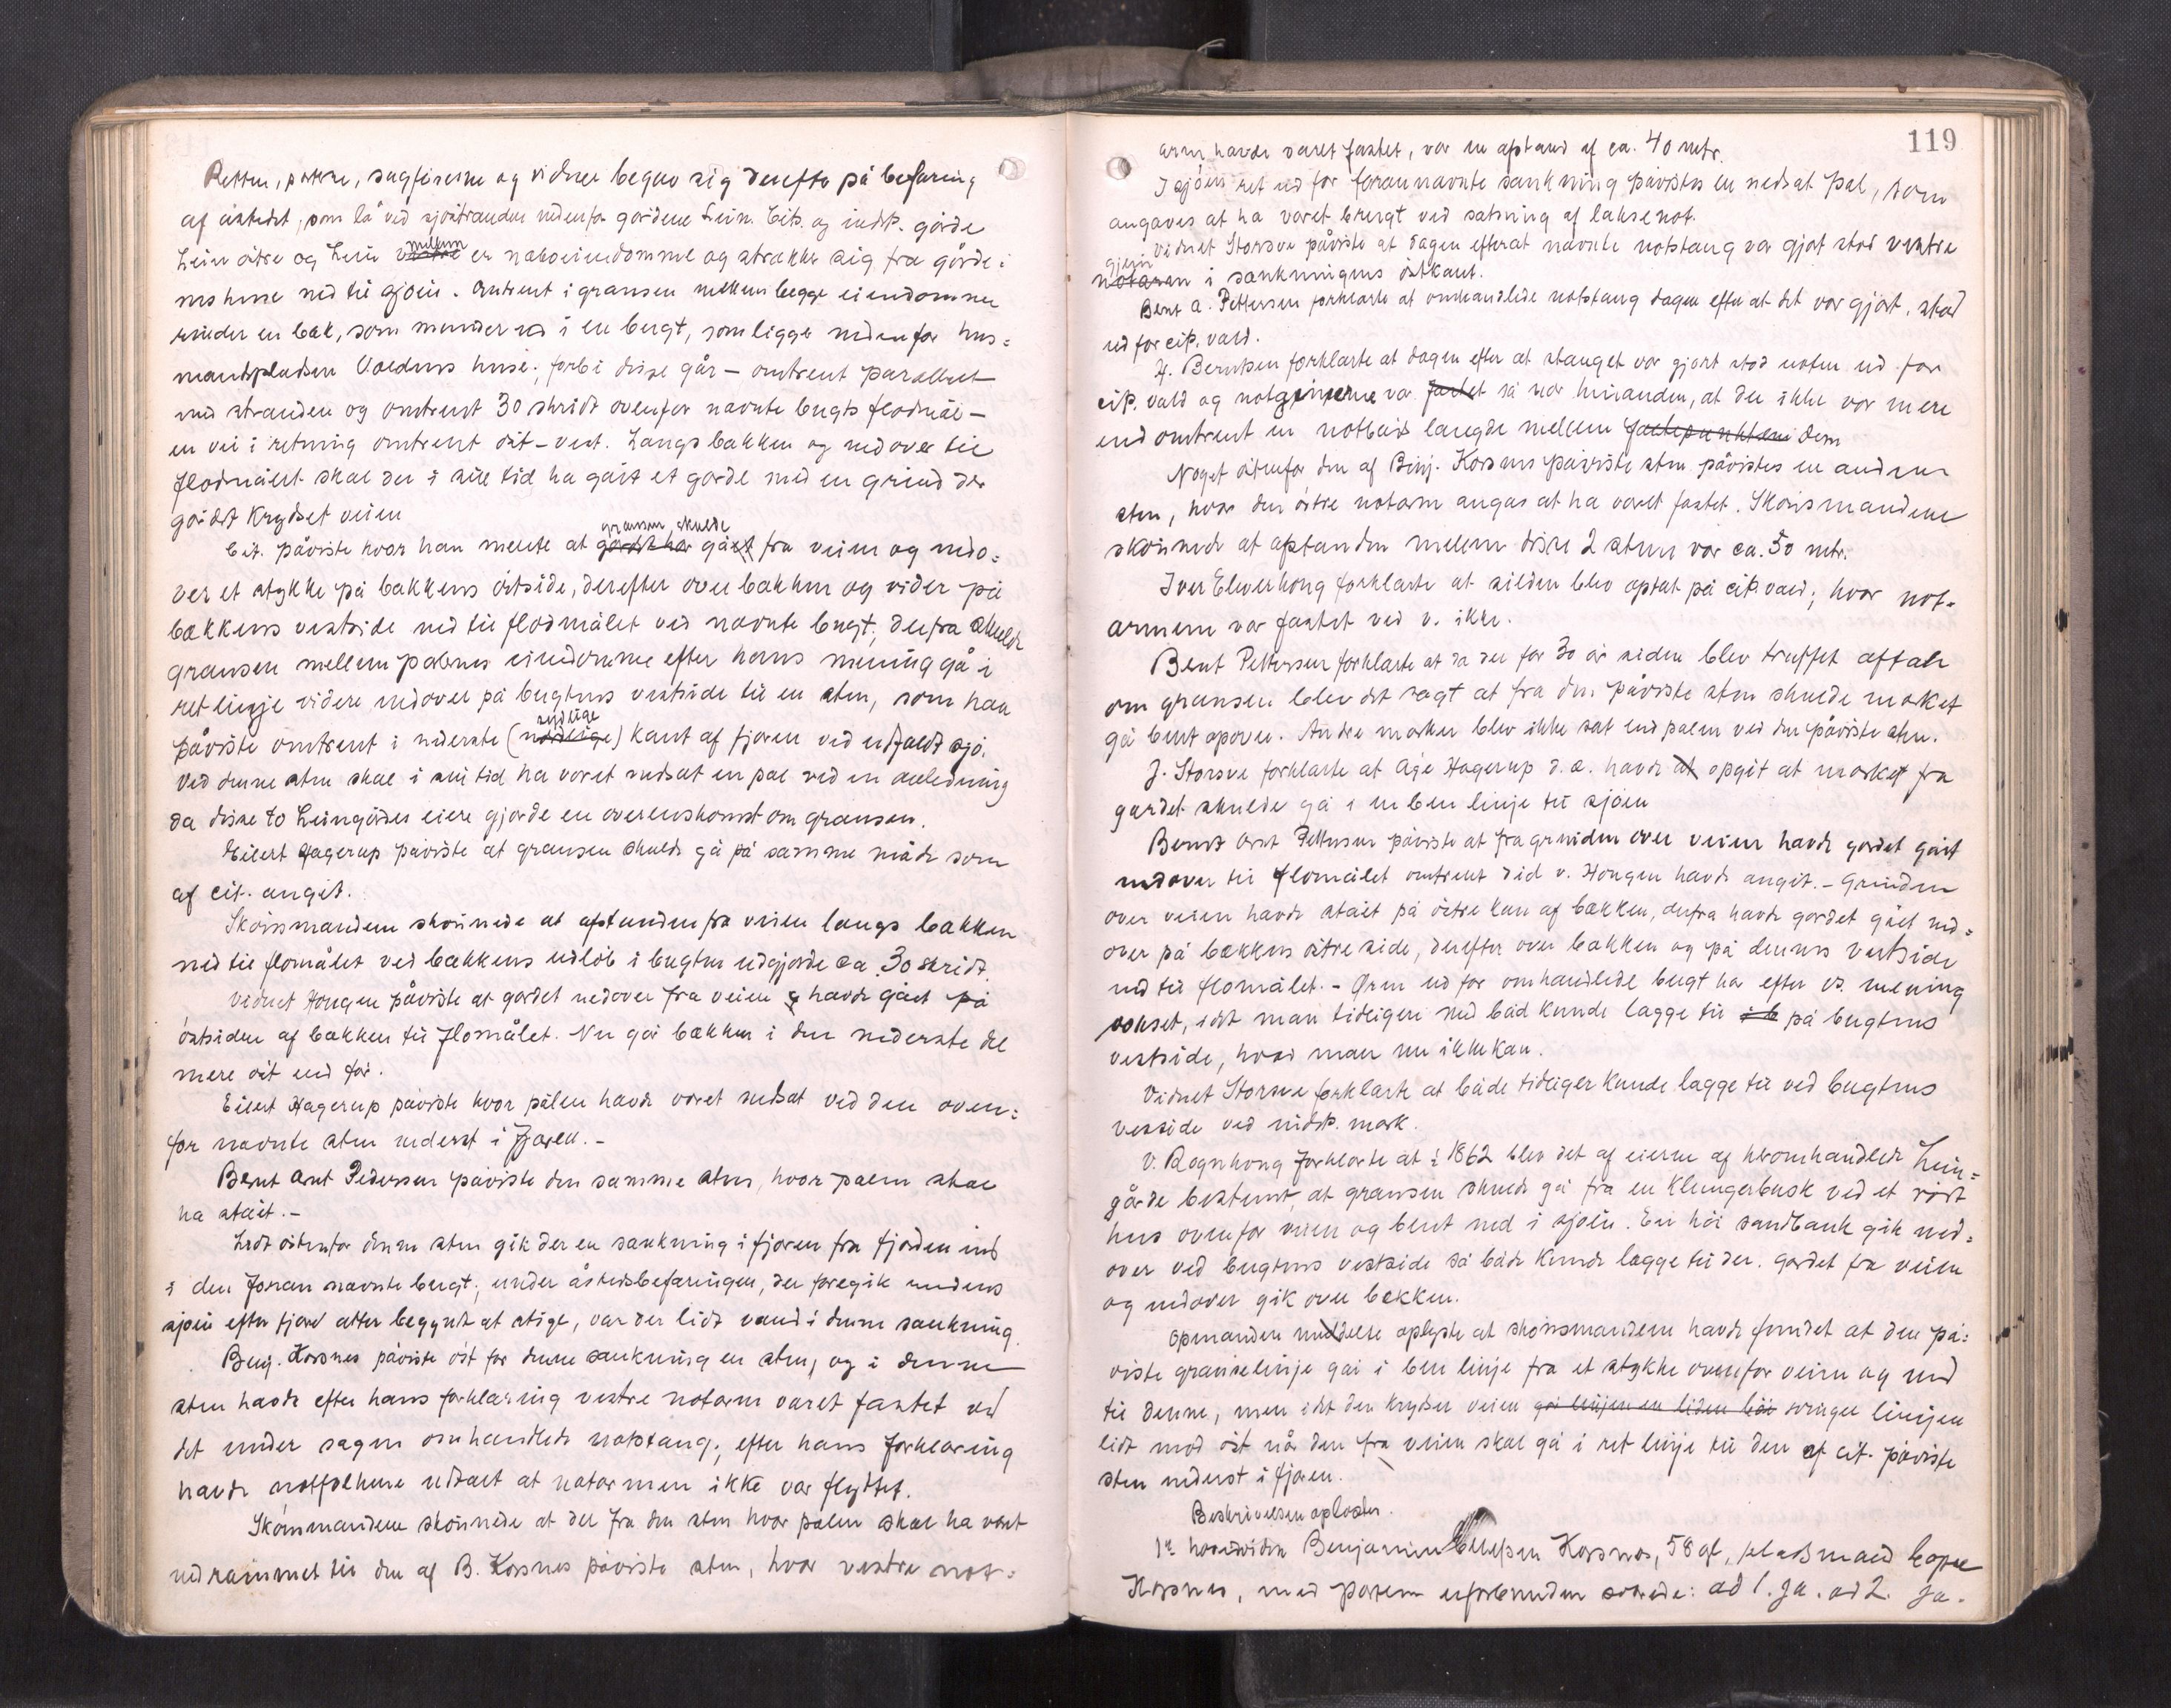 Retten, parterne, sagførerne og vidner begav sig derefter på befaring
af åstedet, som lå ved sjøstranden nedenfor gårdene Lein. Cit.s og indst. gårde
Lein østre og Lein vestre mellem er naboeiendomme og strækker sig fra gårde-
nes huse ned til sjøen. Omtrent i grænsen mellem begge eiendomme
rinder en bæk, som munder ud i en bugt, som ligger nedenfor hus-
mandspladsen Voldens huse; forbi disse går – omtrent parallelt
med stranden og omtrent 30 skridt ovenfor nævnte bugts flodmål –
en vei i retning omtrent øst-vest. Langs bækken og nedover til
flodmålet skal der i sin tid ha gåt et gjærde med en grind der
gjærdet krydset veien
Cit. påviste hvor han mente at gjærdet har grænsen skulde gået fra veien og nedo-
ver et stykke på bækkens østside, derefter over bækken og videre på
bækkens vestside ned til flodmålet ved nævnte bugt; derfra skulde
grænsen mellem parternes eiendomme efter hans mening gå i
ret linje videre nedover på bugtens vestside til en sten, som han
påviste omtrent i nederste (nordlige sydlige) kant af fjæren ved utfaldt sjø.
Ved denne sten skal i sin tid ha været nedsat en pæl ved en anledning
da disse to Leingårdes eiere gjorde en overenskomst om grænsen.
Eilert Hagerup påviste at grænsen skulde gå på samme måde som
af cit. angit.
Skjønsmændene skjønnede at afstanden fra veien langs bækken
ned til flomålet ved bækkens udløb i bugten udgjorde ca. 30 skridt.
Vidnet Haugen påviste at gjærdet nedover fra veien havde gået på
østsiden af bækken til flomålet. Nu går bækken i den nederste del
mere øst end før.
Eilert Hagerup påviste hvor pælen havde været nedsat ved den oven-
for nævnte sten nederst i fjæren. –
Bernt Arnt Pedersen påviste den samme sten, hvor pælen skal
ha stået. –
Lidt østenfor denne sten gik der en sænkning i fjæren fra fjorden ind
i den foran nævnte bugt; under åstedsbefaringen, der foregik medens
sjøen efter fjære atter begyndt at stige, var der lidt vand i denne sænkning.
Benj. Korsnes påviste øst for denne sænkning en sten, og i denne
sten havde efter hans forklaring vestre notarm været fæstet ved
det under sagen omhandlede notstæng; efter hans forklaring
havde notfolkene udtalt at notarmen ikke var flyttet.
Skjønsmændene skjønnede at der fra den sten hvor pælen skal ha været
nedrammet til den af B. Korsnes påviste sten, hvor vestre not-
119
arm havde været fæstet, var en afstand af ca. 40 mtr.
I sjøen ret ud for forannævnte sænkning påvistes en nedsat pæl, som
angaves at ha været brugt ved sætning af laksenot.
Vidnet Storsve påviste at dagen efterat nævnte notstæng var gjort stod vestre
notarm gjein i sænkningens østkant.
Bernt A. Pettersen forklarte at omhandlede notstæng dagen efter at det var gjort, stod
ud for cit.s vald.
H. Berntsen forklarte at dagen efter at stænget var gjort stod noten ud for
cit.s vald og notgjeinerne var fæstet så nær hinanden, at der ikke var mere
end omtrent en notbåds længde mellem fæstepunktene dem
Noget østenfor den af Benj. Korsnes påviste sten påvistes en anden
sten, hvor den østre notarm angas at ha været fæstet. Skjønsmændene
skjønnede at afstanden mellem disse 2 stene var ca. 50 mtr.
Iver Elverhøug forklarte at silden blev optat på cit.s vald; hvor not-
armene var fæstet ved v. ikke.
Bernt Pettersen forklarte at da der for 30 år siden blev truffet aftale
om grænsen blev det sagt at fra den påviste sten skulde mærket
gå bent opover. Andre mærker blev ikke sat end pælen ved den påviste sten.
J. Storsve forklarte at Åge Hagerup d.æ. havde at opgit at mærket fra
gjærdet skulde gå i en ben linje til sjøen
Bernt Arnt Pettersen påviste at fra grinden over veien havde gjærdet gået
nedover til flomålet omtrent did v. Haugen havde angit. – Grinden
over veien havde stået på østre kan af bækken, derfra havde gjærdet gået ned-
over på bækkens østre side, derefter over bækken og på dennes vestside
ned til flomålet. – Øren ud for omhandlede bugt har efter v.s mening
vokset, idet man tidligere med båd kunde lægge til på bugtens
vestside, hvad man nu ikke kan.
Vidnet Storsve forklarte at både tidliger kunde lægge til ved bugtens
vestside ved indst. mark.
V. Rognhaug forklarte at i 1862 blev det af eierne af heromhandlede Lein-
gårde bestemt, at grænsen skulde gå fra en klungerbusk ved et røst
hus ovenfor veien og bent ned i sjøen. En høi sandbank gik ned-
over ved bugtens vestside så både kunde lægge til der. Gjærdet fra veien
og nedover gik over bækken.
Opmanden meddelte oplyste at skjønsmændene havde fundet at den på-
viste grænselinje går i ben linje fra et stykke ovenfor veien og ned
til denne, men idet den krydser veien går linjen en liden bøi svinger linjen
lidt mod øst når den fra veien skal gå i ret linje til den af cit. påviste
sten nederst i fjæren.
Beskrivelsen oplæst.
1ste hovedvidne Benjamin Ellefsen Korsnes, 58 gl., pladsmand
Korsnes, med parterne uforbunden svarede: ad 1. Ja. ad 2. Ja.